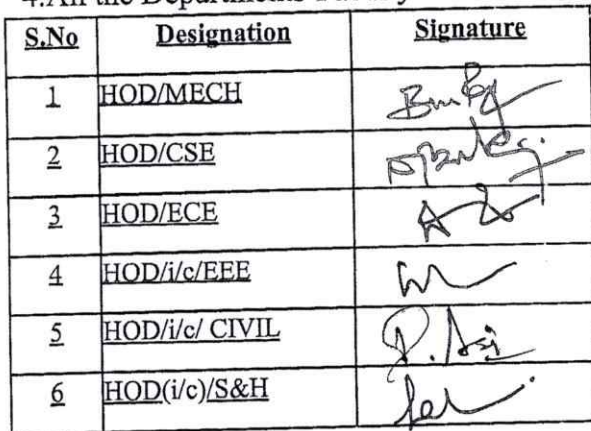 4.All the Departments
S.No Designation Signature
1 HOD/MECH
2 HOD/CSE
3 HOD/ECE
4 HOD/i/c/EEE
5 HOD/i/c/ CIVIL
6 HOD(i/c)/S&H